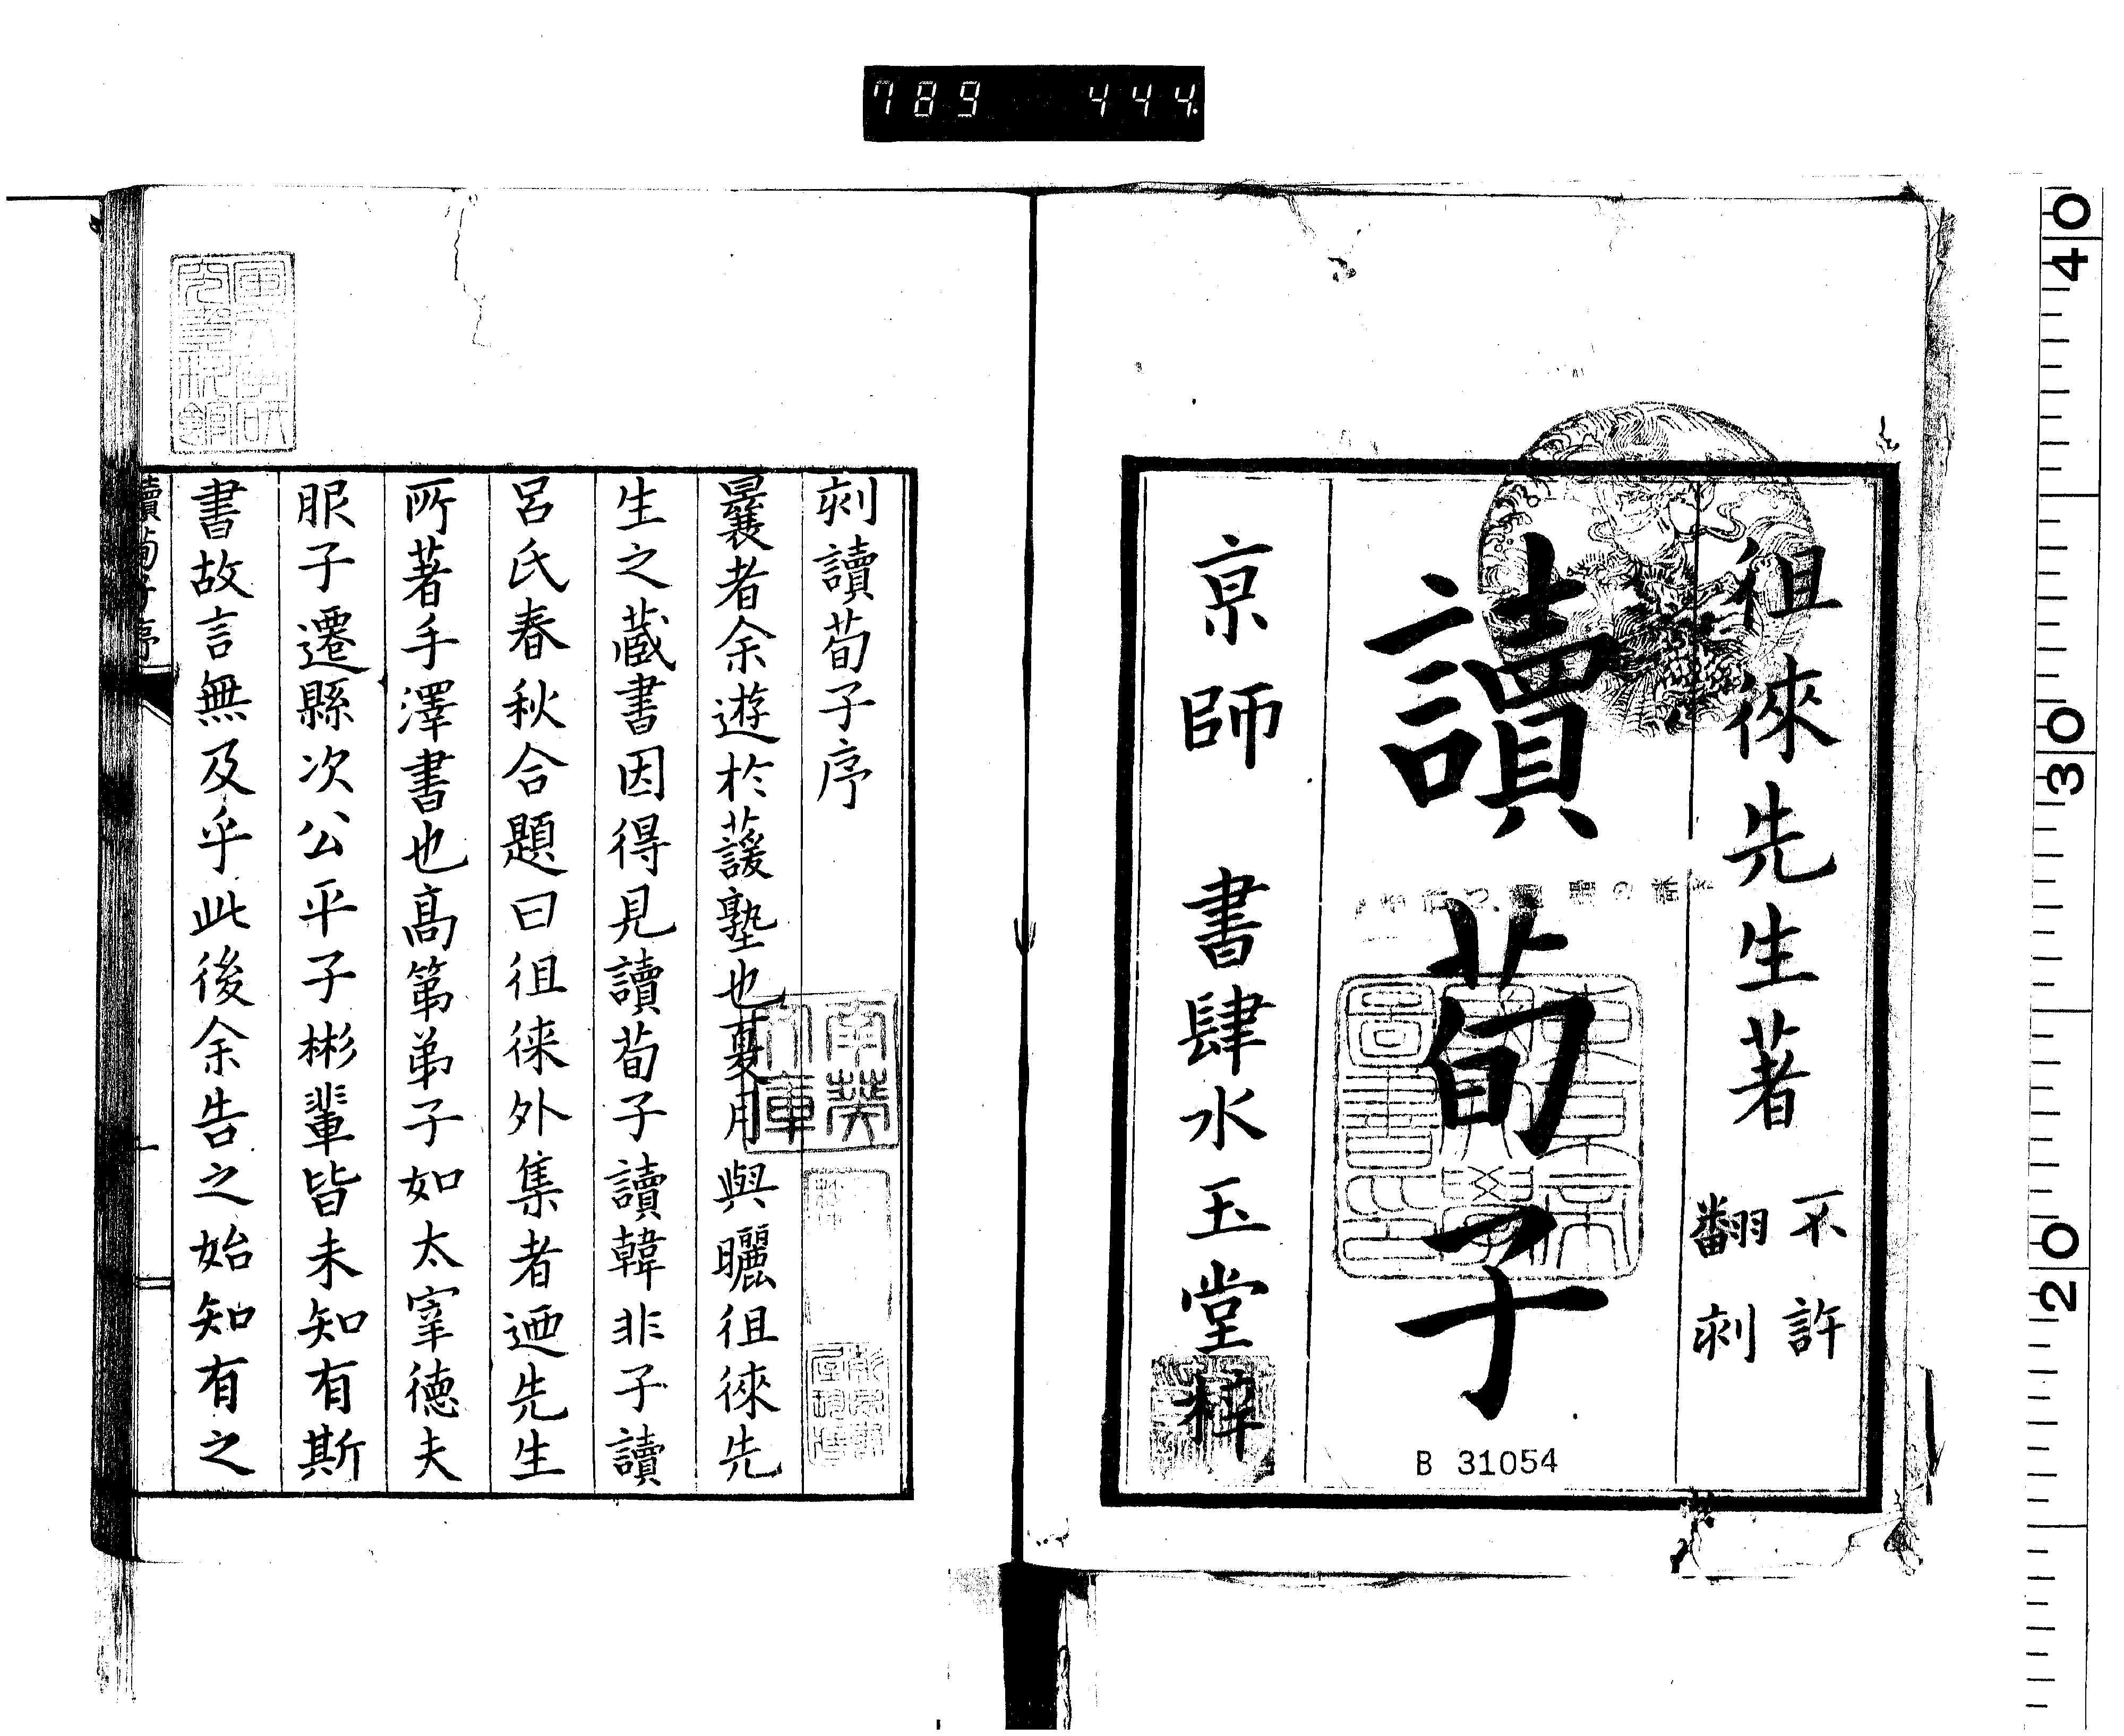 789 444.
徂徠先生著
不許
翻刻
讀荀子
京師 書肆水玉堂梓
B 31054
刻讀荀子序
曩者余遊於蘐塾也夏月與曬徂徠先
生之藏書因得見讀荀子讀韓非子讀
呂氏春秋合題曰徂徠外集者迺先生
所著手澤書也高第弟子如太宰德夫
服子遷縣次公平子彬輩皆未知有斯
書故言無及乎此後余告之始知有之
讀荀子序
東京帝
國大學
圖書印
南葵
文庫
40
30
20